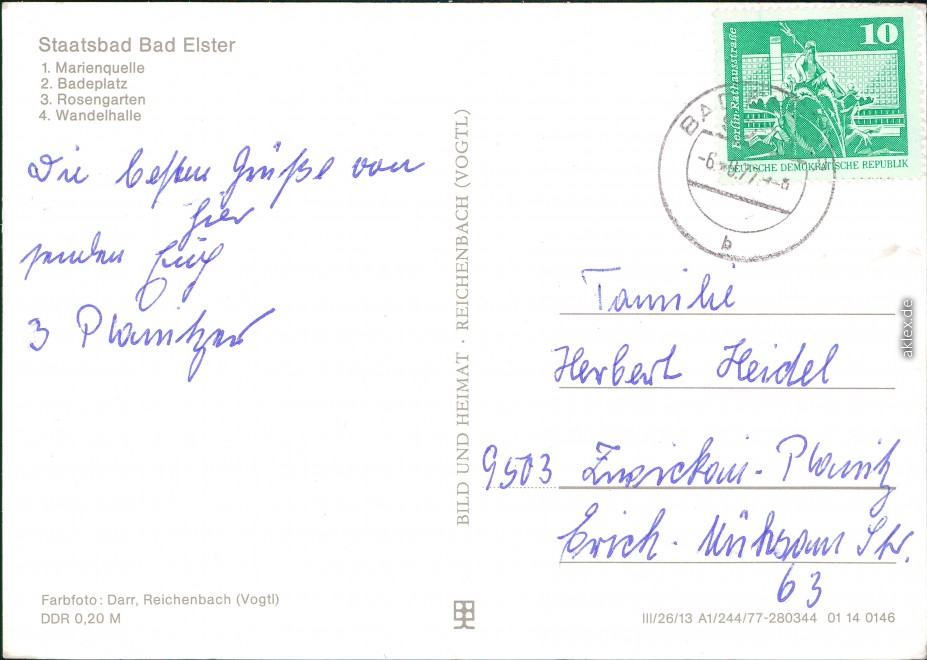 Staatsbad Bad Elster
1. Marienquelle
2. Badeplatz
3. Rosengarten
4. Wandelhalle
Die besten Grüße von
hier
senden Euch
3 Planitzer
BILD UND HEIMAT · REICHENBACH (VOGTL)
Farbfoto: Darr, Reichenbach (Vogtl)
DDR 0,20 M
10
Berlin·Rathausstraße
DEUTSCHE DEMOKRATISCHE REPUBLIK
BAD
b
Familie
Herbert Heidel
9503 Zwickau-Planitz
Erich-Mühsam Str.
63
III/26/13 A1/244/77-280344 01 14 0146
aklex.de